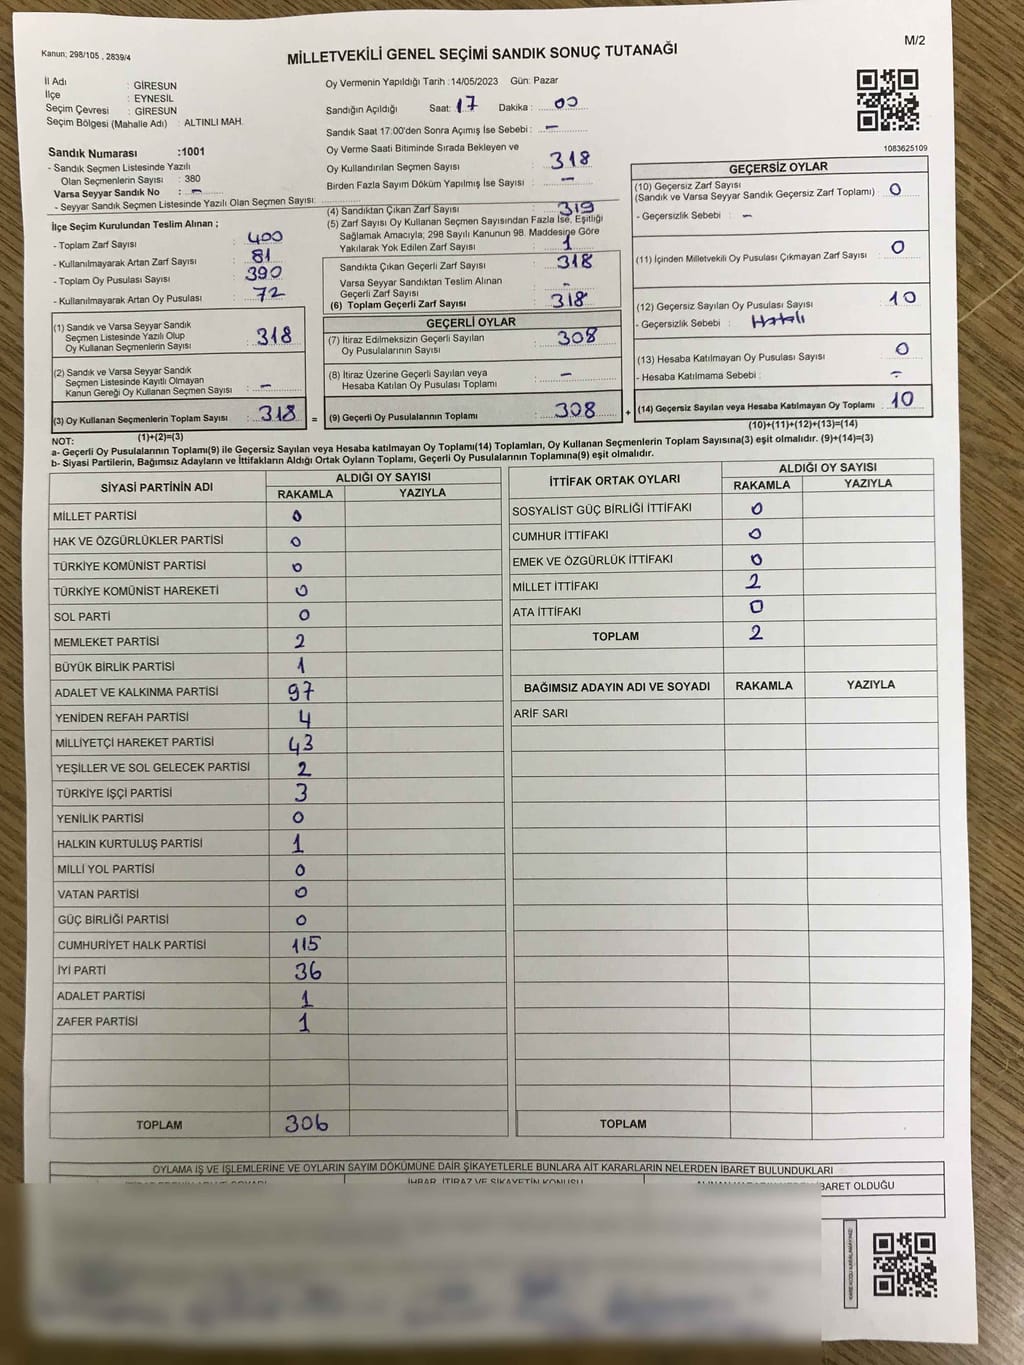 M/2
Kanun; 298/105 , 2839/4
MİLLETVEKİLİ GENEL SEÇİMİ SANDIK SONUÇ TUTANAĞI
İl Adı : GİRESUN
İlçe : EYNESİL
Seçim Çevresi : GİRESUN
Seçim Bölgesi (Mahalle Adı) : ALTINLI MAH.
Sandık Numarası :1001
- Sandık Seçmen Listesinde Yazılı
Olan Seçmenlerin Sayısı : 380
Varsa Seyyar Sandık No : -
- Seyyar Sandık Seçmen Listesinde Yazılı Olan Seçmen Sayısı:
İlçe Seçim Kurulundan Teslim Alınan ;
- Toplam Zarf Sayısı : 400
- Kullanılmayarak Artan Zarf Sayısı : 81
- Toplam Oy Pusulası Sayısı : 390
- Kullanılmayarak Artan Oy Pusulası : 72
(1) Sandık ve Varsa Seyyar Sandık
Seçmen Listesinde Yazılı Olup
Oy Kullanan Seçmenlerin Sayısı : 318
(2) Sandık ve Varsa Seyyar Sandık
Seçmen Listesinde Kayıtlı Olmayan
Kanun Gereği Oy Kullanan Seçmen Sayısı : -
(3) Oy Kullanan Seçmenlerin Toplam Sayısı : 318
(1)+(2)=(3)
Oy Vermenin Yapıldığı Tarih : 14/05/2023 Gün: Pazar
Sandığın Açıldığı Saat: 17 Dakika : 00
Sandık Saat 17:00'den Sonra Açımış İse Sebebi : -
Oy Verme Saati Bitiminde Sırada Bekleyen ve
Oy Kullandırılan Seçmen Sayısı : 318
Birden Fazla Sayım Döküm Yapılmış İse Sayısı : -
(4) Sandıktan Çıkan Zarf Sayısı : 319
(5) Zarf Sayısı Oy Kullanan Seçmen Sayısından Fazla İse, Eşitliği
Sağlamak Amacıyla; 298 Sayılı Kanunun 98. Maddesine Göre
Yakılarak Yok Edilen Zarf Sayısı : 1
Sandıkta Çıkan Geçerli Zarf Sayısı : 318
Varsa Seyyar Sandıktan Teslim Alınan
Geçerli Zarf Sayısı : -
(6) Toplam Geçerli Zarf Sayısı : 318
GEÇERLİ OYLAR
(7) İtiraz Edilmeksizin Geçerli Sayılan
Oy Pusulalarının Sayısı : 308
(8) İtiraz Üzerine Geçerli Sayılan veya
Hesaba Katılan Oy Pusulası Toplamı : -
= (9) Geçerli Oy Pusulalarının Toplamı : 308
1083625109
GEÇERSİZ OYLAR
(10) Geçersiz Zarf Sayısı
(Sandık ve Varsa Seyyar Sandık Geçersiz Zarf Toplamı) : 0
- Geçersizlik Sebebi : -
(11) İçinden Milletvekili Oy Pusulası Çıkmayan Zarf Sayısı : 0
(12) Geçersiz Sayılan Oy Pusulası Sayısı : 10
- Geçersizlik Sebebi : Hatalı
(13) Hesaba Katılmayan Oy Pusulası Sayısı : 0
- Hesaba Katılmama Sebebi : -
+ (14) Geçersiz Sayılan veya Hesaba Katılmayan Oy Toplamı : 10
(10)+(11)+(12)+(13)=(14)
NOT:
a- Geçerli Oy Pusulalarının Toplamı(9) ile Geçersiz Sayılan veya Hesaba katılmayan Oy Toplamı(14) Toplamları, Oy Kullanan Seçmenlerin Toplam Sayısına(3) eşit olmalıdır. (9)+(14)=(3)
b- Siyasi Partilerin, Bağımsız Adayların ve İttifakların Aldığı Ortak Oyların Toplamı, Geçerli Oy Pusulalarının Toplamına(9) eşit olmalıdır.
SİYASİ PARTİNİN ADI ALDIĞI OY SAYISI
RAKAMLA YAZIYLA
MİLLET PARTİSİ 0
HAK VE ÖZGÜRLÜKLER PARTİSİ 0
TÜRKİYE KOMÜNİST PARTİSİ 0
TÜRKİYE KOMÜNİST HAREKETİ 0
SOL PARTİ 0
MEMLEKET PARTİSİ 2
BÜYÜK BİRLİK PARTİSİ 1
ADALET VE KALKINMA PARTİSİ 97
YENİDEN REFAH PARTİSİ 4
MİLLİYETÇİ HAREKET PARTİSİ 43
YEŞİLLER VE SOL GELECEK PARTİSİ 2
TÜRKİYE İŞÇİ PARTİSİ 3
YENİLİK PARTİSİ 0
HALKIN KURTULUŞ PARTİSİ 1
MİLLİ YOL PARTİSİ 0
VATAN PARTİSİ 0
GÜÇ BİRLİĞİ PARTİSİ 0
CUMHURİYET HALK PARTİSİ 115
İYİ PARTİ 36
ADALET PARTİSİ 1
ZAFER PARTİSİ 1
TOPLAM 306
İTTİFAK ORTAK OYLARI ALDIĞI OY SAYISI
RAKAMLA YAZIYLA
SOSYALİST GÜÇ BİRLİĞİ İTTİFAKI 0
CUMHUR İTTİFAKI 0
EMEK VE ÖZGÜRLÜK İTTİFAKI 0
MİLLET İTTİFAKI 2
ATA İTTİFAKI 0
TOPLAM 2
BAĞIMSIZ ADAYIN ADI VE SOYADI RAKAMLA YAZIYLA
ARİF SARI
TOPLAM
OYLAMA İŞ VE İŞLEMLERİNE VE OYLARIN SAYIM DÖKÜMÜNE DAİR ŞİKAYETLERLE BUNLARA AİT KARARLARIN NELERDEN İBARET BULUNDUKLARI
İHBAR, İTİRAZ VE ŞİKAYETİN KONUSU
İBARET OLDUĞU